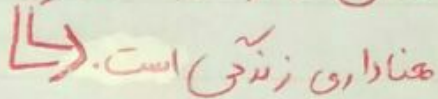 معناداری زندگی است.